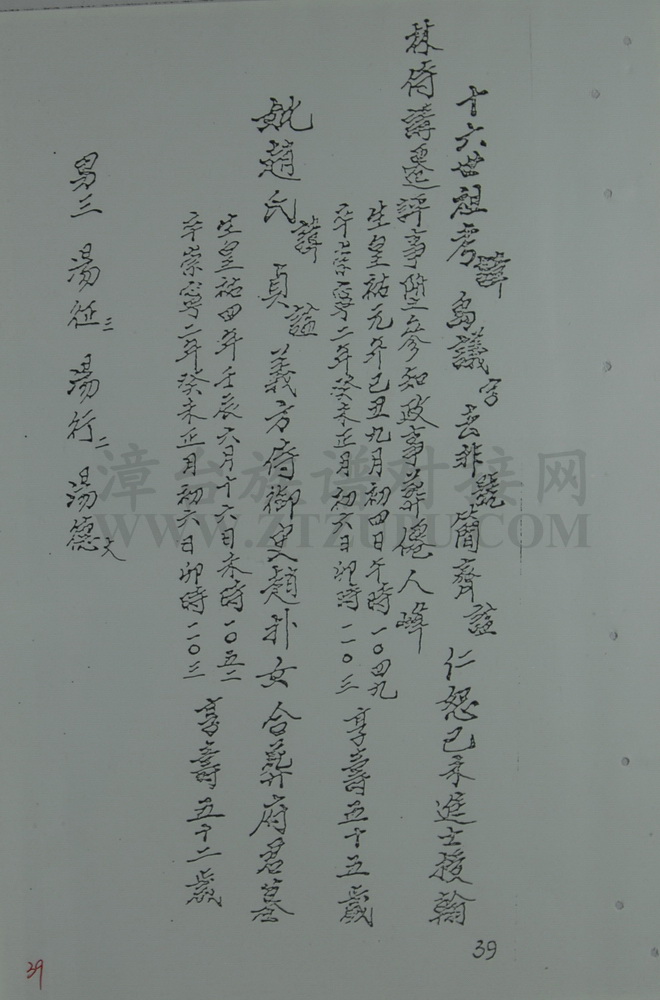 十六世祖考諱島議字去非號簡齊謚仁恕己未進士授翰
林侍講遷評事陞參知政事葬僊人峰
生皇祐元年己丑九月初四日午時一〇四九
卒崇寧二年癸未正月初六日卯時一一〇三 享壽五十五歲
妣趙氏諱貞謚義方侍御史趙朴女合葬府君墓
生皇祐四年壬辰六月十六日未時一〇五二
卒崇寧二年癸未正月初六日卯時一一〇三 享壽五十二歲
男三 湯征三 湯行二 湯德大
漳台族谱对接网
WWW.ZTZUPU.COM
39
39